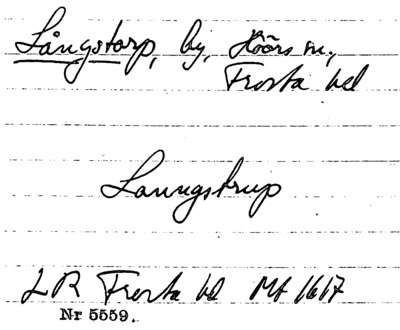 Långstarp, by, Höörs sn,
Frosta hd
Lanngstrup
LR Frosta hd Mf 1617
Nr 5559.